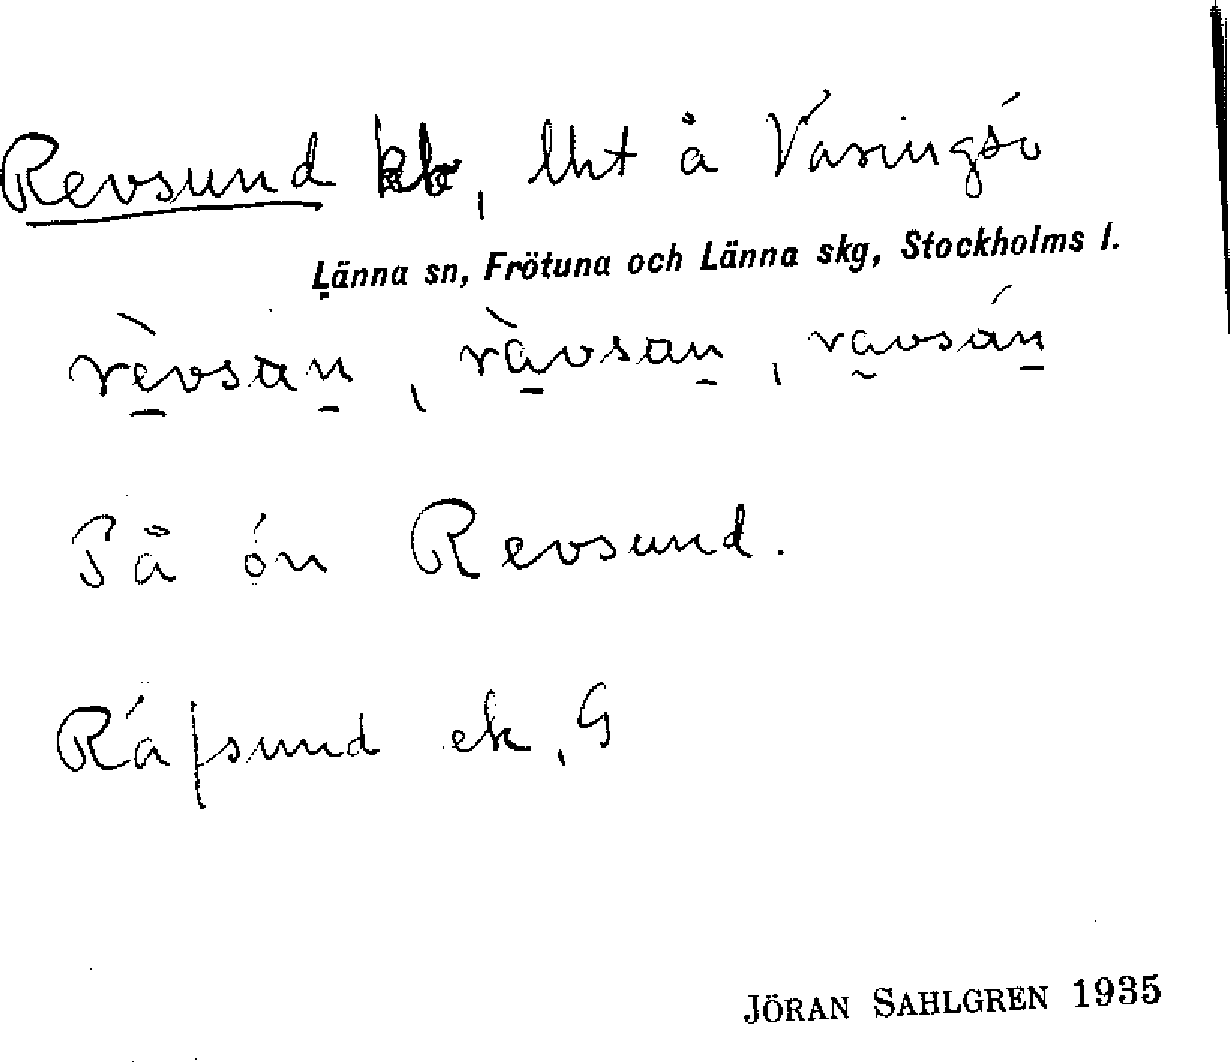 Revsund, lht å Väringsö
Länna sn, Frötuna och Länna skg, Stockholms l.
rèvsan, ràvsan, ravsán
På ön Revsund.
Räfsund ek, G
JÖRAN SAHLGREN 1935